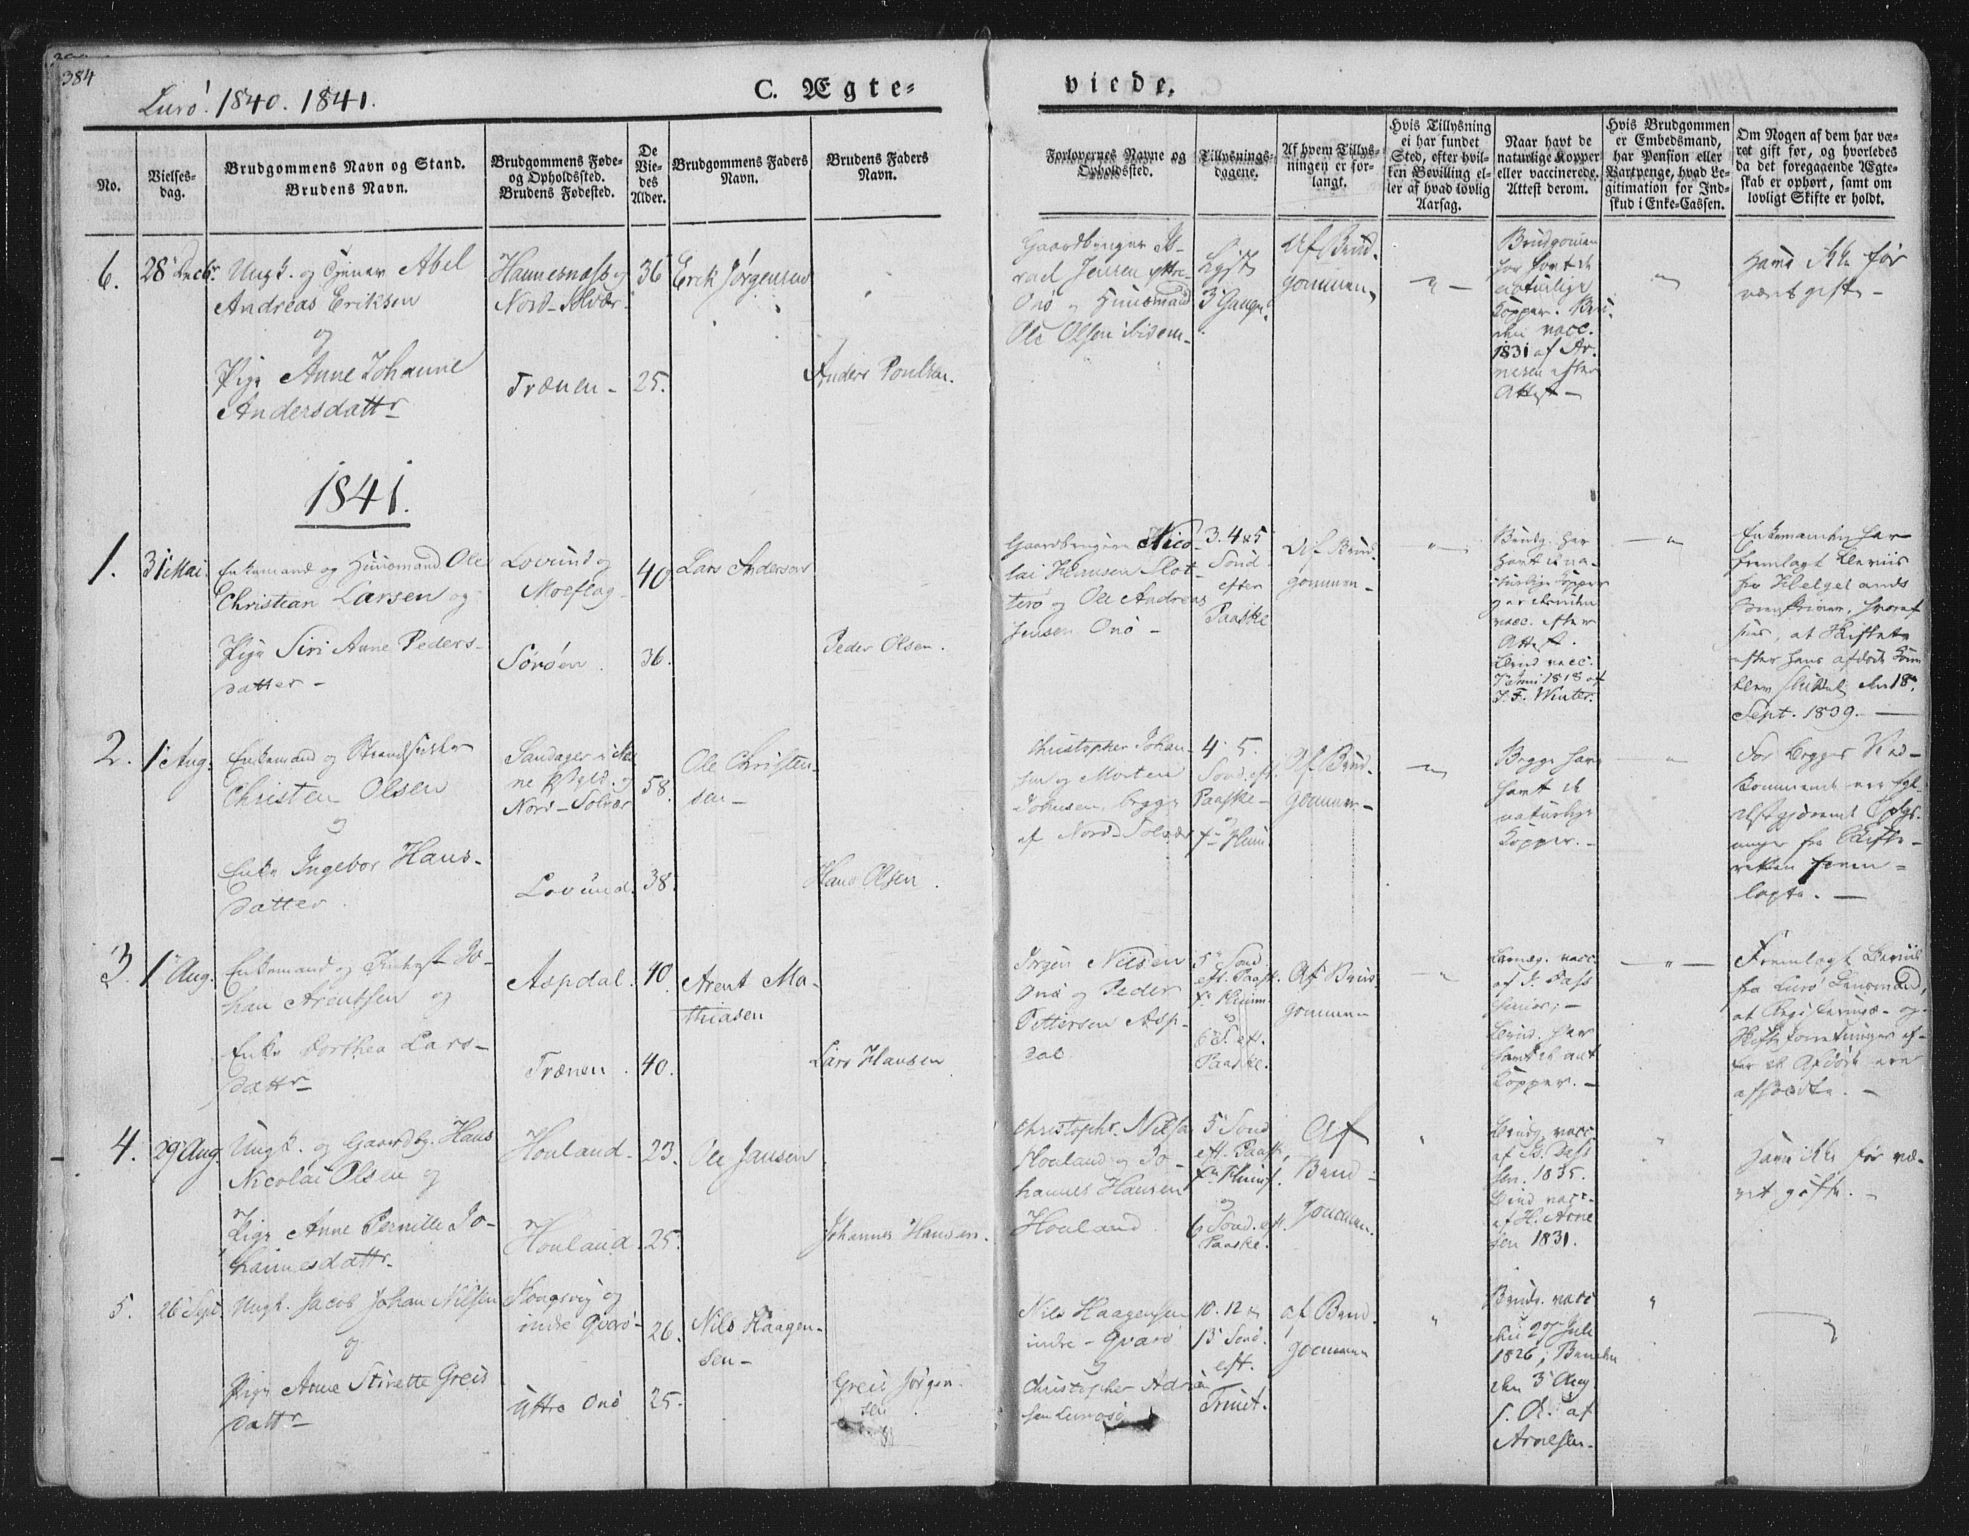 384
Lurö. 1840. 1841.
C. Ægte-
viede.
No.
Vielses-
dag.
Brudgommens Navn og Stand.
Brudens Navn.
Brudgommens Føde-
og Opholdssted.
Brudens Fødested.
De
Vie-
des
Alder.
Brudgommens Faders
Navn.
Brudens Faders
Navn.
Forlovernes Navne og
Opholdssted.
Tillysnings-
dagene.
Af hvem Tillys-
ningen er for-
langt.
Hvis Tillysning
ei har fundet
Sted, efter hvil-
ken Bevilling el-
ler af hvad lovlig
Aarsag.
Naar havt de
naturlige Kopper
eller vaccinerede.
Attest derom.
Hvis Brudgommen
er Embedsmand,
har Pension eller
Vartpenge, hvad Le-
gitimation for Ind-
skud i Enke-Cassen.
Om Nogen af dem har væ-
ret gift før, og hvorledes
da det foregaaende Ægte-
skab er ophørt, samt om
lovligt Skifte er holdt.
6.
28 Decbr.
Ungk. og Tjener Abel
Andreas Eriksen
og
Pige Anne Johanne
Andersdattr
Hannesnass og
Nord-Solvær
Trænen
36
25.
Erik Jørgensen
Anders Poulsen.
Gaardbruger Is-
rael Jensen
Onö og Huusmand
Ole Olsen ibidem
Lyst
3 Gange
Af Brud-
gommen
Brudgommen
har havt de
naturlige
Kopper. Bru-
den vacc.
1831 af Ar-
nesen efter
Attest
Have ikke før
været gifte
1841.
1.
31 Mai
Enkemand og Huusmand Ole
Christian Larsen og
Pige Siri Anne Peders-
datter
Lovund og
Moeflag
Sörøen
40
36.
Lars Anderson
Peder Olsen.
Gaardbruger Nico-
lai Hansen Slot-
terö og Ole Andreas
Jensen Onö
3. 4 & 5
Sönd
efter
Paaske
Af Brud-
gommen
Brudg. har
havt de na-
turlige Kopper
vacc. efter
Attest.
Brud vacc.
1818 af
J. F. Winter.
Enkemanden har
fremlagt Beviis
fra Helgelands
Sorenskriver, hvoraf
sees, at Skiftet
efter hans afdøde Kone
blev sluttet den 18
Sept. 1839.
2.
1 Aug.
Enkemand og Strandsidder
Christen Olsen
og
Enke Ingebor Hans-
datter
Sandager i
Nord-Solvær
Lovund
58.
38.
Ole Christen-
sen
Hans Olsen.
Christopher Johan-
sen og Morten
Johnsen, begge
af Nord Solvær
4. 5.
Sönd. eft.
Paaske
Af Brud-
gommen
Begge have
havt de
naturlige
Kopper.
For begges Ved-
kommende
fra Skifte-
retten frem-
lagte.
3.
1 Aug.
Enkemand og Jo-
han Arentsen og
Enke Dorthea Lars-
dattr
Aspdal.
Trænen
40
40.
Arent Ma-
thiasen
Lars Hansen
Jørgen Nilsen
Onö og Peder
Pettersen Asp-
dal
5 Sönd
eft. Paask.
6 S. eft.
Paaske.
Af Brud-
gommen
Brudg. vacc.
af P. Dass
senior;
Brud. har
havt de nat.
Kopper.
Fremlagt Beviis
fra Lurö Lensmand,
at Registerings- og
Skifteforretninger ef-
ter de Afdøde ere
afholdte.
4.
29 Aug.
Ungk. og Gaardbg. Hans
Nicolai Olsen og
Pige Anne Pernille Jo-
hannesdattr
Houland.
Houland
23.
25.
Ole Jansen
Johannes Hansen.
Christophr. Nilsen
Houland og Jo-
hannes Hansen
Houland
5 Sönd
eft. Paask.
og
6 Sönd. eft.
Paaske.
Af
Brud-
gomman.
Brudg. vacc.
af P. Dass
sen. 1835.
Brud vacc.
af H. Arne
sen 1831.
Have ikke før væ-
ret gifte.
5.
26 Sept.
Ungk. Jacob Johan Nilsen
og
Pige Anne Sivette Greis
dattr
Kongsvig og
indre Qvarö
Uttre Onö
26.
25.
Nils Haagen-
sen
Greis Jörgen-
sen
Nils Haagensen
indre-Qvarö
og
Christopher Adri
sen
10. 12 &
13 Sönd.
eft.
Trinit.
Af Brud-
gommen
Brudg. vacc.
den 27 Juli
1826; Bruden
den 3 Aug
s. A. af
Arnesen.